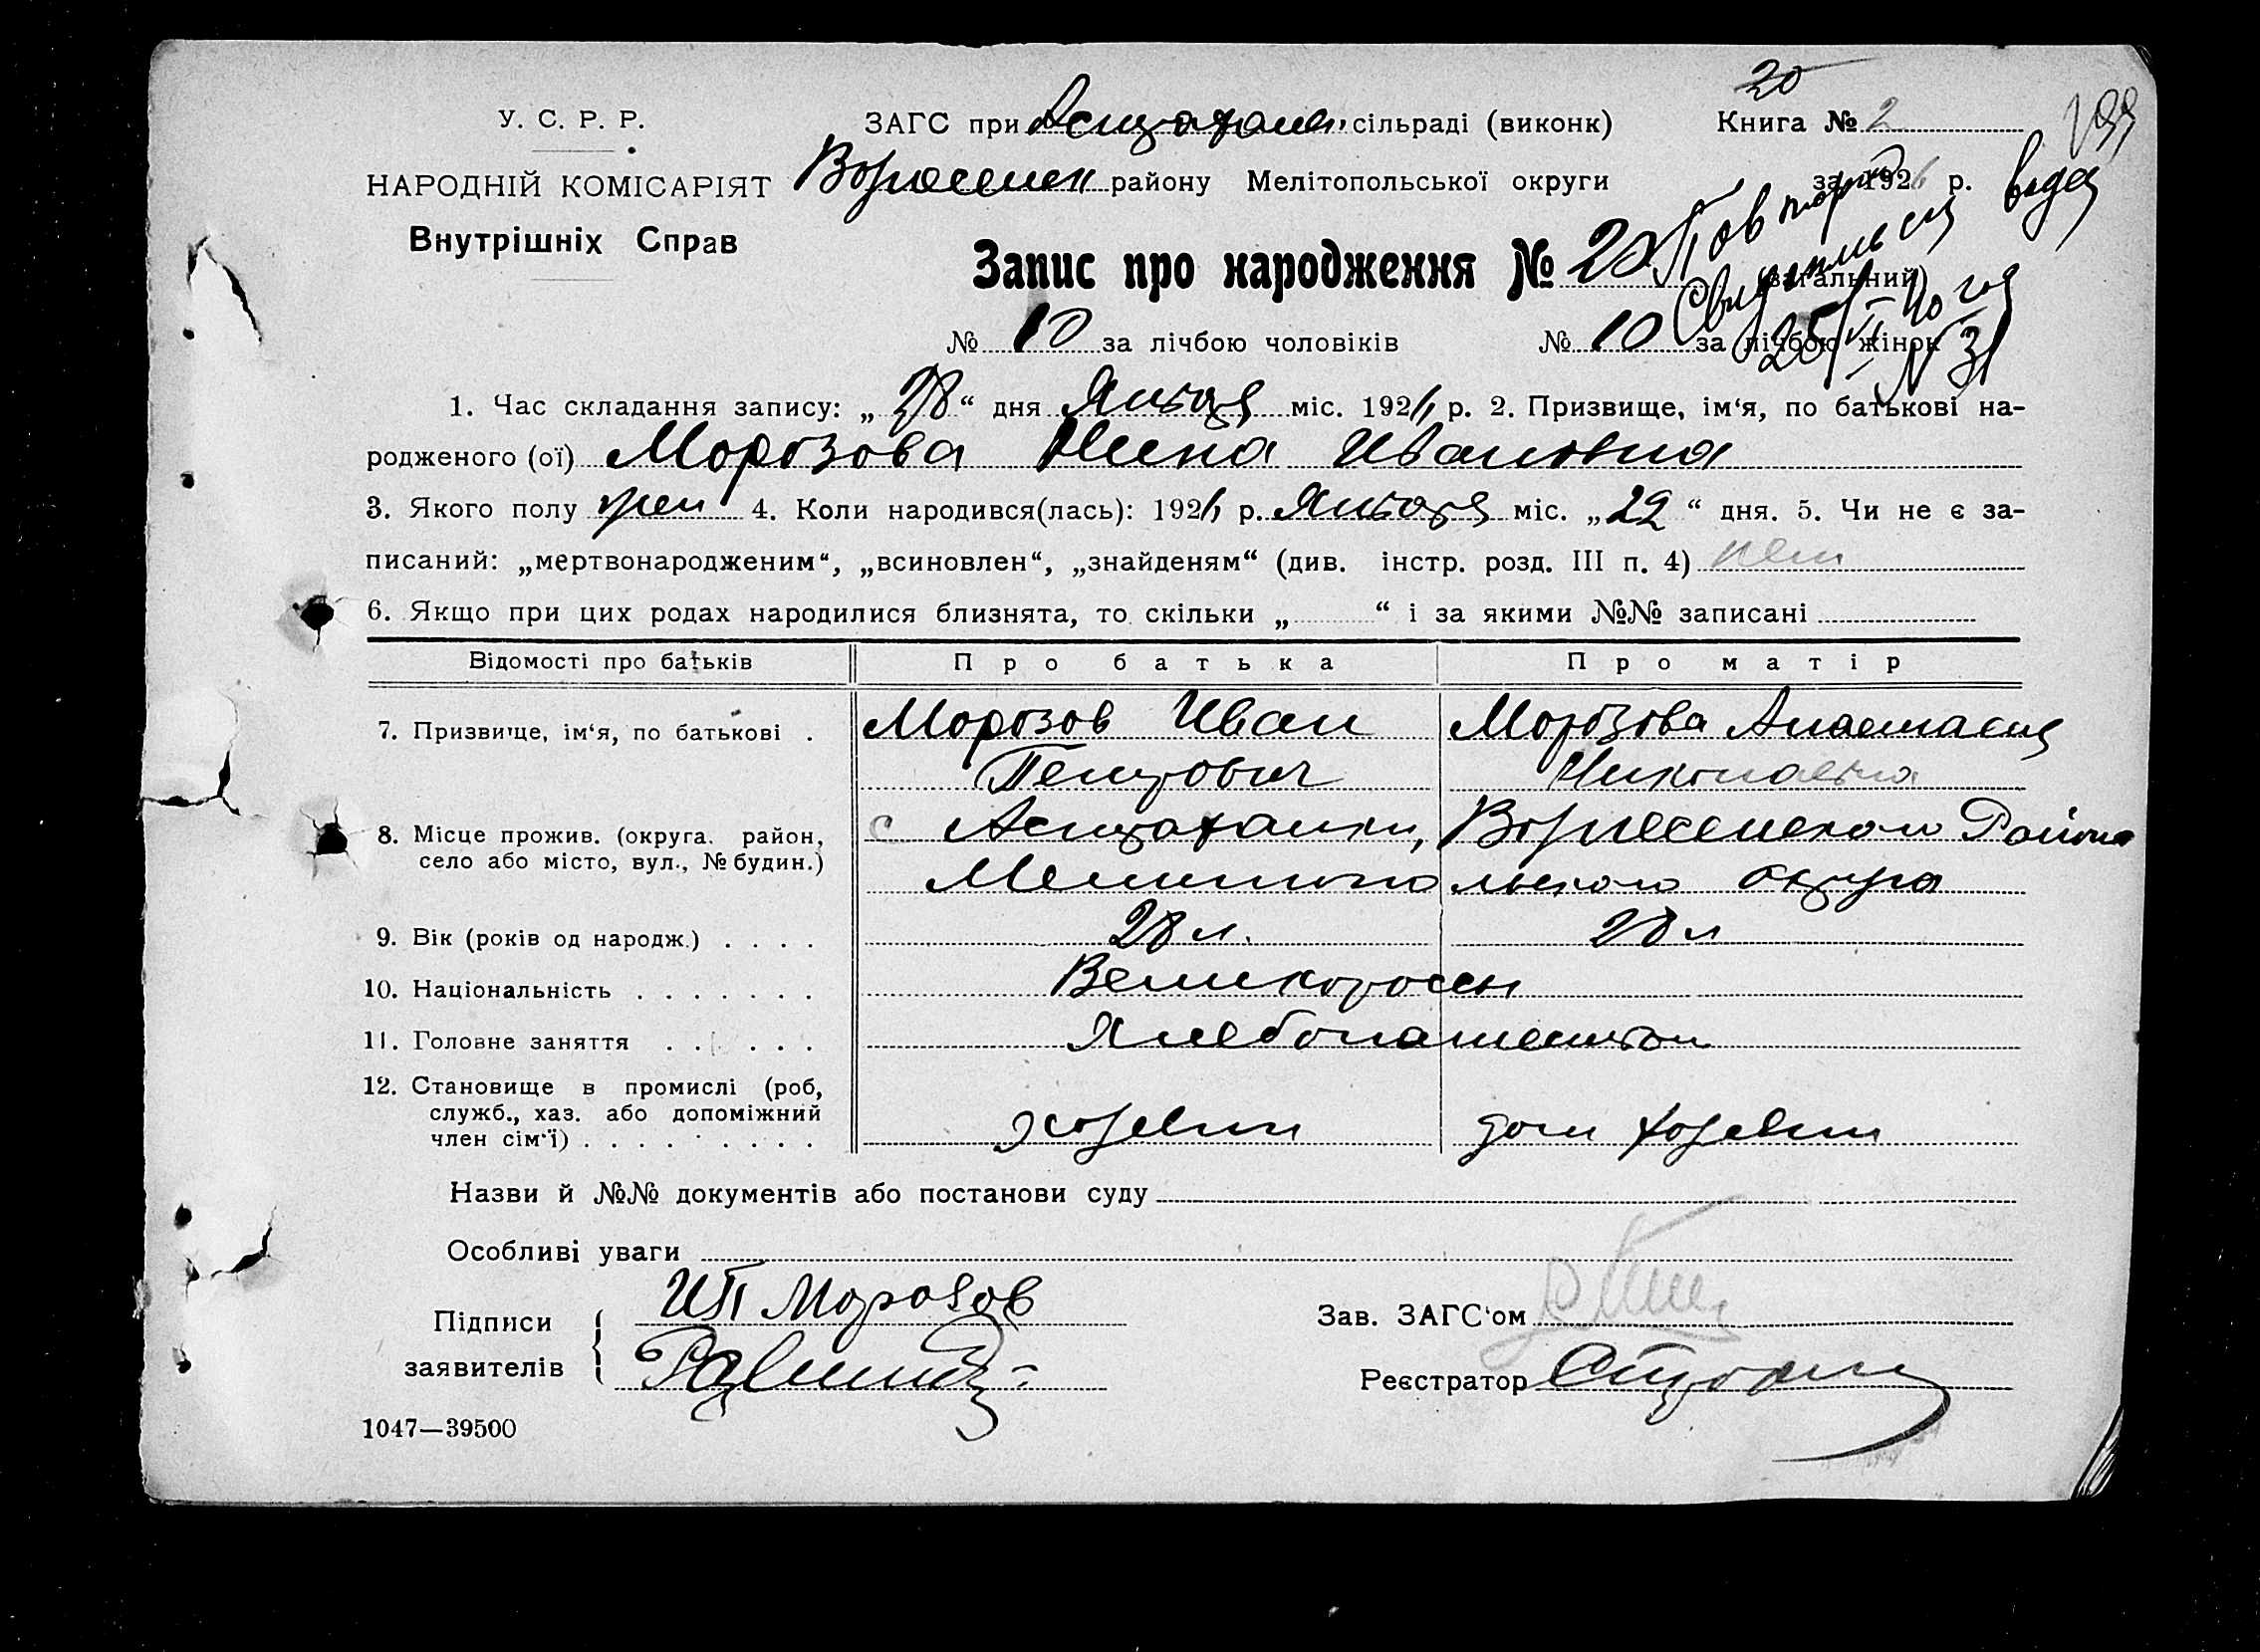 20
У. С. Р. Р. ЗАГС при Астрахан. сільраді (виконк) Книга № 2
НАРОДНІЙ КОМІСАРІЯТ Вознесенск району Мелітопольської округи за 1926 р.
Внутрішніх Справ
Повторно Свидетельст выдан
25/VI-40 год
N 31
Запис про народження № 20 (загальний)
№ 10 за лічбою чоловіків № 10 за лічбою жінок
1. Час складання запису: „28“ дня Января міс. 1926 р. 2. Призвище, ім‘я, по батькові на-
родженого (ої) Морозова Нина Ивановна
3. Якого полу жен 4. Коли народився(лась): 1926 р. Января міс. „22“ дня. 5. Чи не є за-
писаний: „мертвонародженим“, „всиновлен“, „знайденям“ (див. інстр. розд. III п. 4) нет
6. Якщо при цих родах народилися близнята, то скільки „ “ і за якими №№ записані
Відомості про батьків Про батька Про матір
7. Призвище, ім‘я, по батькові . Морозов Иван Морозова Анастасия
Петрович Николаевна
8. Місце прожив. (округа. район, с Астраханки, Вознесенского Района
село або місто, вул., № будин.) Мелитопольского округа
9. Вік (років од народж.) . . . . 28 л. 28 л
10. Національність . . . . . . . Великороссы
11. Головне заняття . . . . . . Хлебопашеством
12. Становище в промислі (роб,
служб., хаз. або допоміжний
член сім‘ї) . . . . . . . . . хозяин дом хозяин
Назви й №№ документів або постанови суду
Особливі уваги
Підписи ИП Морозов Зав. ЗАГС‘ом
заявителів Реєстратор
1047—39500